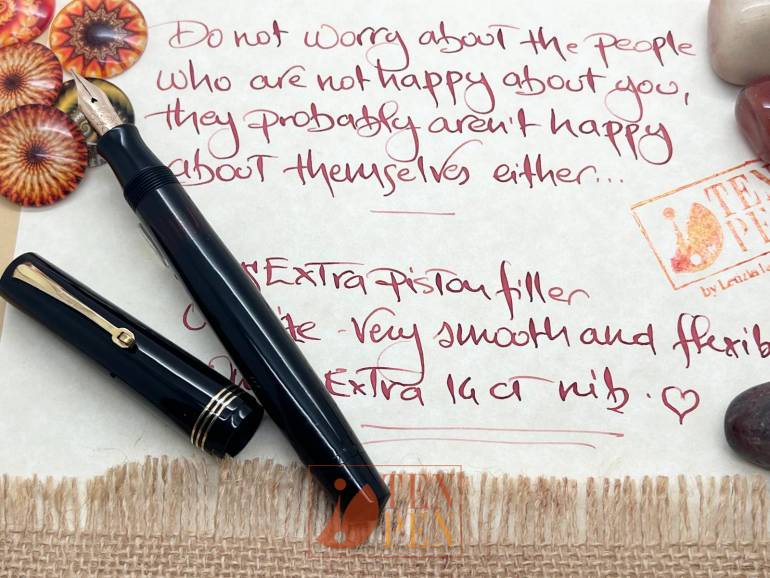 Do not worry about the people
who are not happy about you,
they probably aren't happy
about themselves either...
Extra Piston filler
very smooth and flexib
Extra 14 ct nib.
TEN
PEN
by Letizia
TEN
PEN